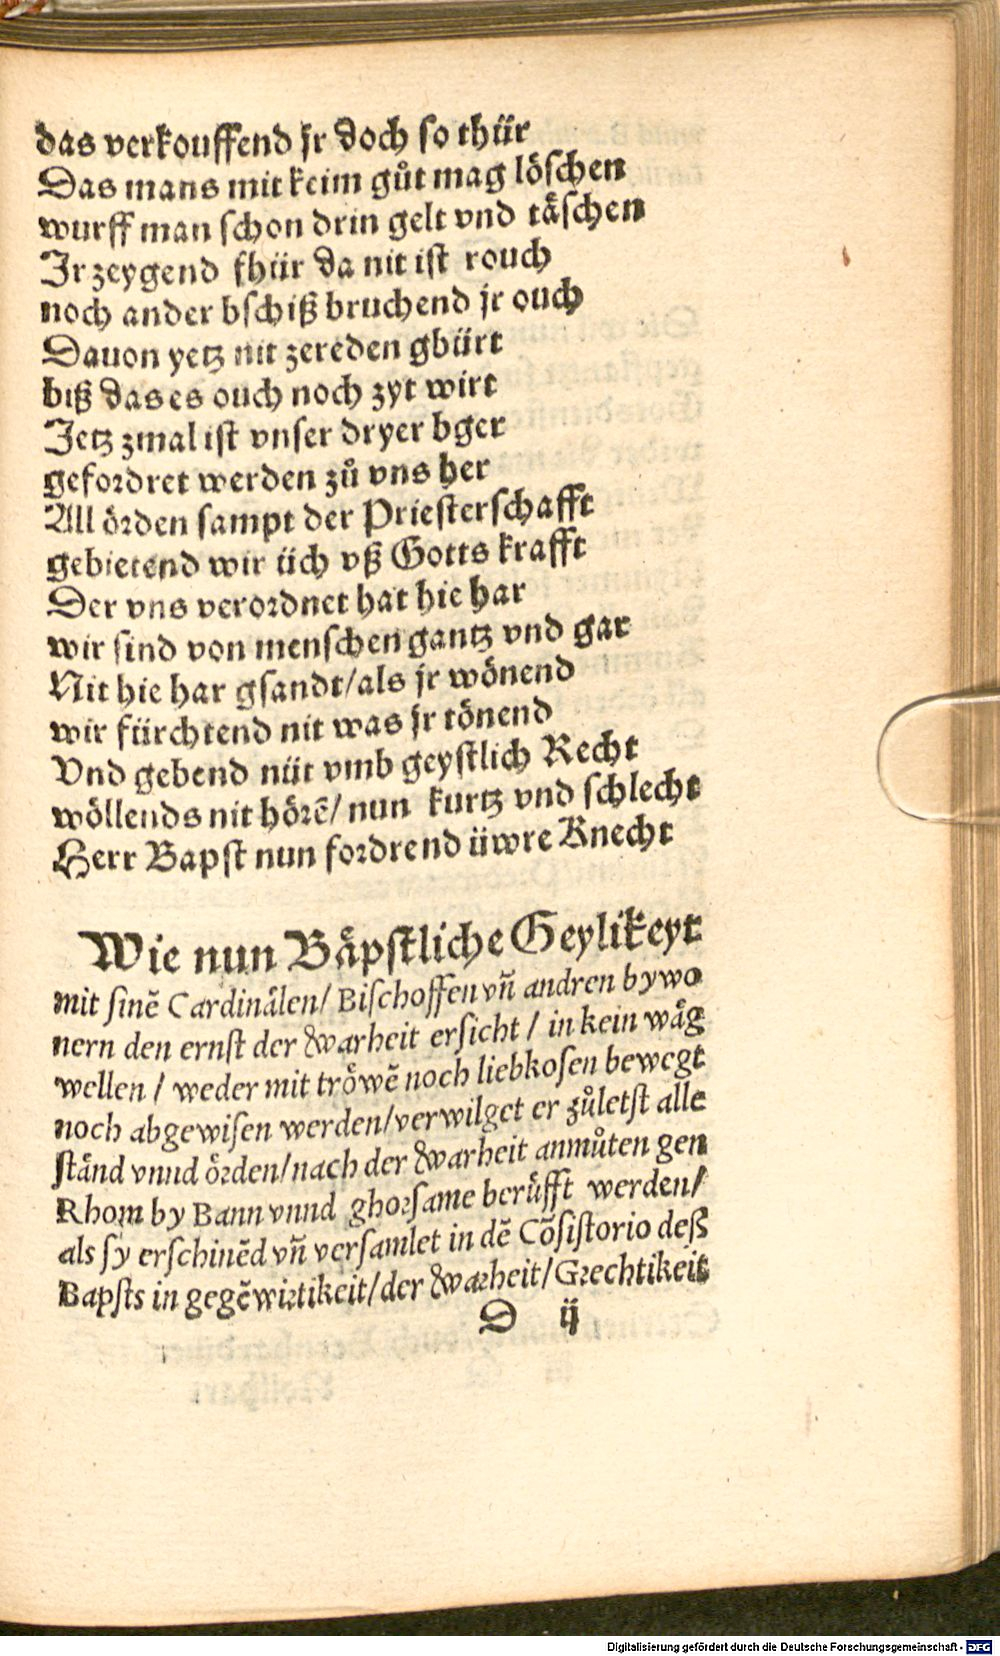 das verkouffend jr doch so thür
Das mans mit keim gůt mag löschen
wurff man schon drin gelt vnd täschen
Jr zeygend fhür da nit ist rouch
noch ander bschiß bruchend jr ouch
Dauon yetz nit zereden gbürt
biß das es ouch noch zyt wirt
Jetz zmal ist vnser dryer bger
gefordret werden zů vns her
All örden sampt der Priesterschafft
gebietend wir üch vß Gotts krafft
Der vns verordnet hat hie har
wir sind von menschen gantz vnd gar
Nit hie har gsandt/als jr wönend
wir fürchtend nit was jr tönend
Vnd gebend nüt vmb geystlich Recht
wöllends nit hörē/ nun kurtz vnd schlecht
Herr Bapst nun fordrend üwre Knecht
Wie nun Bäpstliche Geylikeyt
mit sinē Cardinälen/ Bischoffen vñ andren bywo
nern den ernst der Warheit ersicht / in kein wäg
wellen / weder mit tröwē noch liebkosen bewegt
noch abgewisen werden/verwilget er zůletst alle
ständ vnnd örden/nach der Warheit anmůten gen
Rhom by Bann vnnd ghorsame berüfft werden/
als sy erschinēd vñ versamlet in dē Cōsistorio deß
Bapsts in gegēwirtikeit/der Warheit/Grechtikeit
D ij
Digitalisierung gefördert durch die Deutsche Forschungsgemeinschaft - DFG